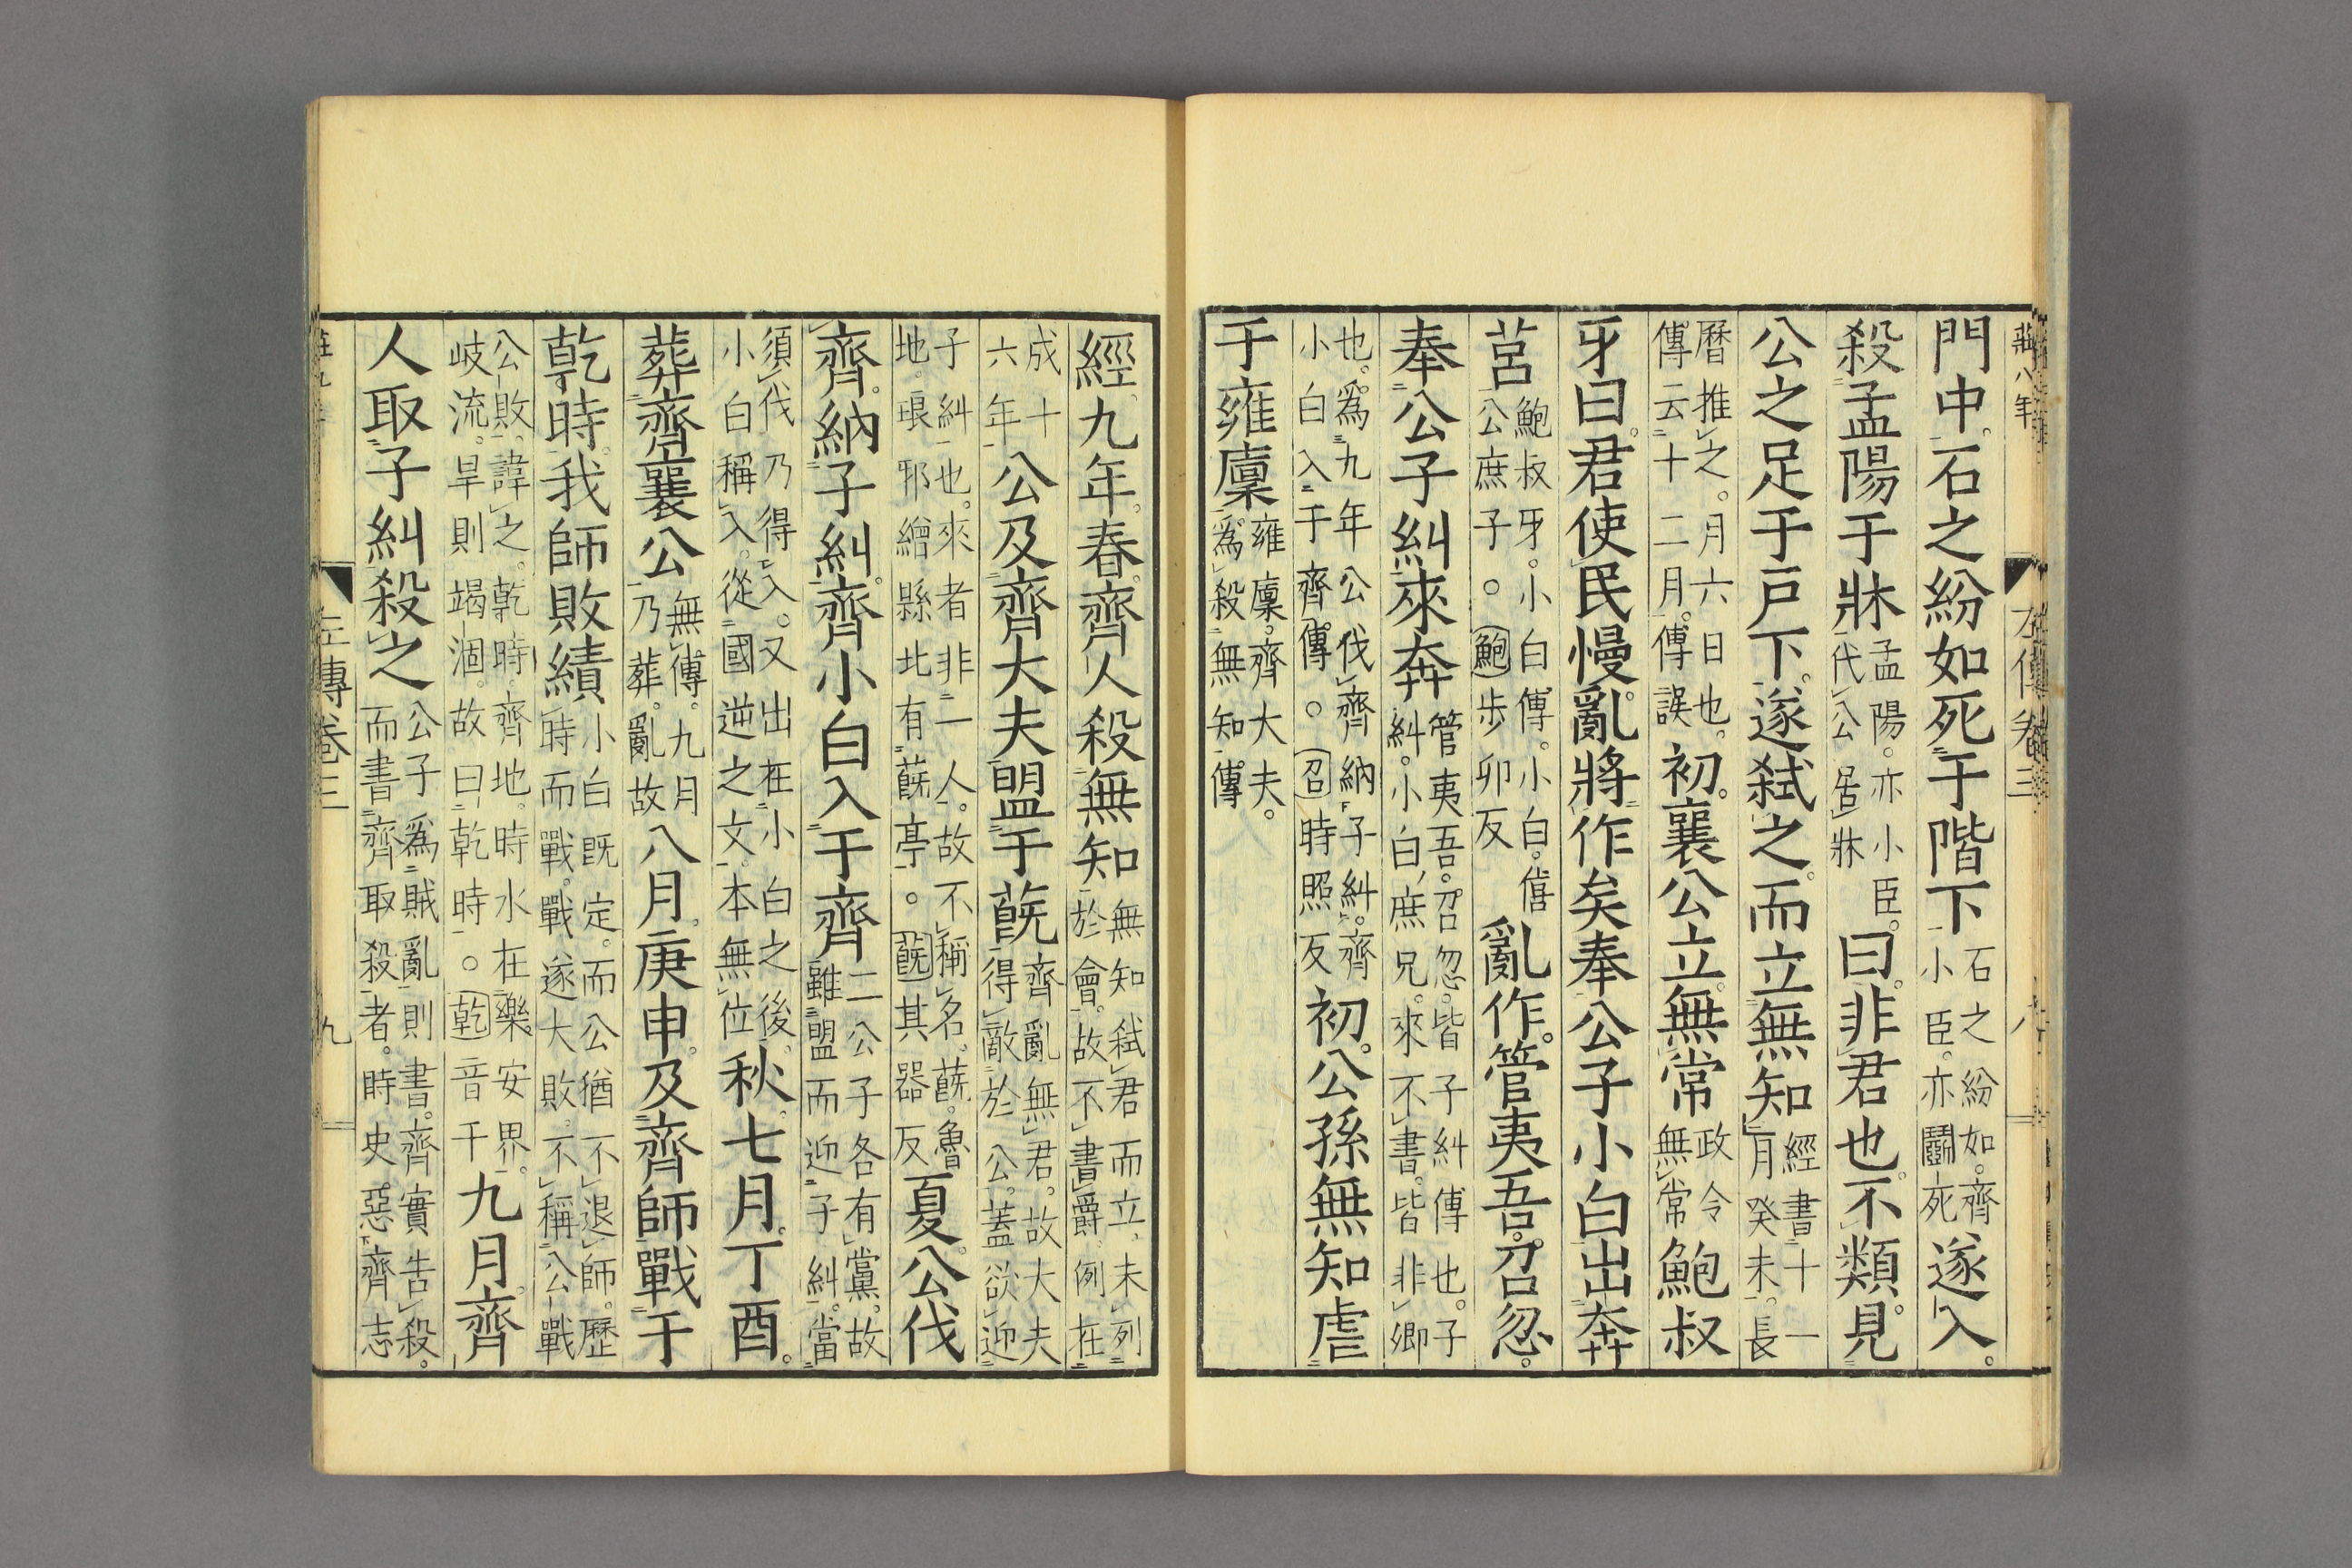 莊八年
左傳卷三
八
門中石之紛如死于階下石之紛如齊小臣亦鬭死遂入
殺孟陽于牀孟陽亦小臣代公居牀曰非君也不類見
公之足于戶下遂弑之而立無知經書十一月癸未長
曆推之月六日也傳云十二月傳誤初襄公立無常政令無常鮑叔
牙曰君使民慢亂將作矣奉公子小白出奔
莒鮑叔牙小白傅小白僖公庶子。鮑步卯反亂作管夷吾召忽
奉公子糾來奔管夷吾召忽皆子糾傅也子糾小白庶兄來不書皆非卿
也為九年公伐齊納子糾齊小白入于齊傳。召時照反初公孫無知虐
于雍廩雍廩齊大夫為殺無知傳
經九年春齊人殺無知無知弑君而立未列於會故不書爵例在
成十六年公及齊大夫盟于蔇齊亂無君故大夫得敵於公蓋欲迎
子糾也來者非一人故不稱名蔇魯地琅邪繒縣北有蔇亭。蔇其器反夏公伐
齊納子糾齊小白入于齊二公子各有黨故雖盟而迎子糾當
須伐乃得入又出在小白之後小白稱入從國逆之文本無位秋七月丁酉
葬齊襄公無傳九月乃葬亂故八月庚申及齊師戰于
乾時我師敗績小白既定而公猶不退師歷時而戰戰遂大敗不稱公戰
公敗諱之乾時齊地時水在樂安界岐流旱則竭涸故曰乾時。乾音干九月齊
人取子糾殺之公子為賊亂則書齊實告殺而書齊取殺者時史惡齊志
左傳卷三
九